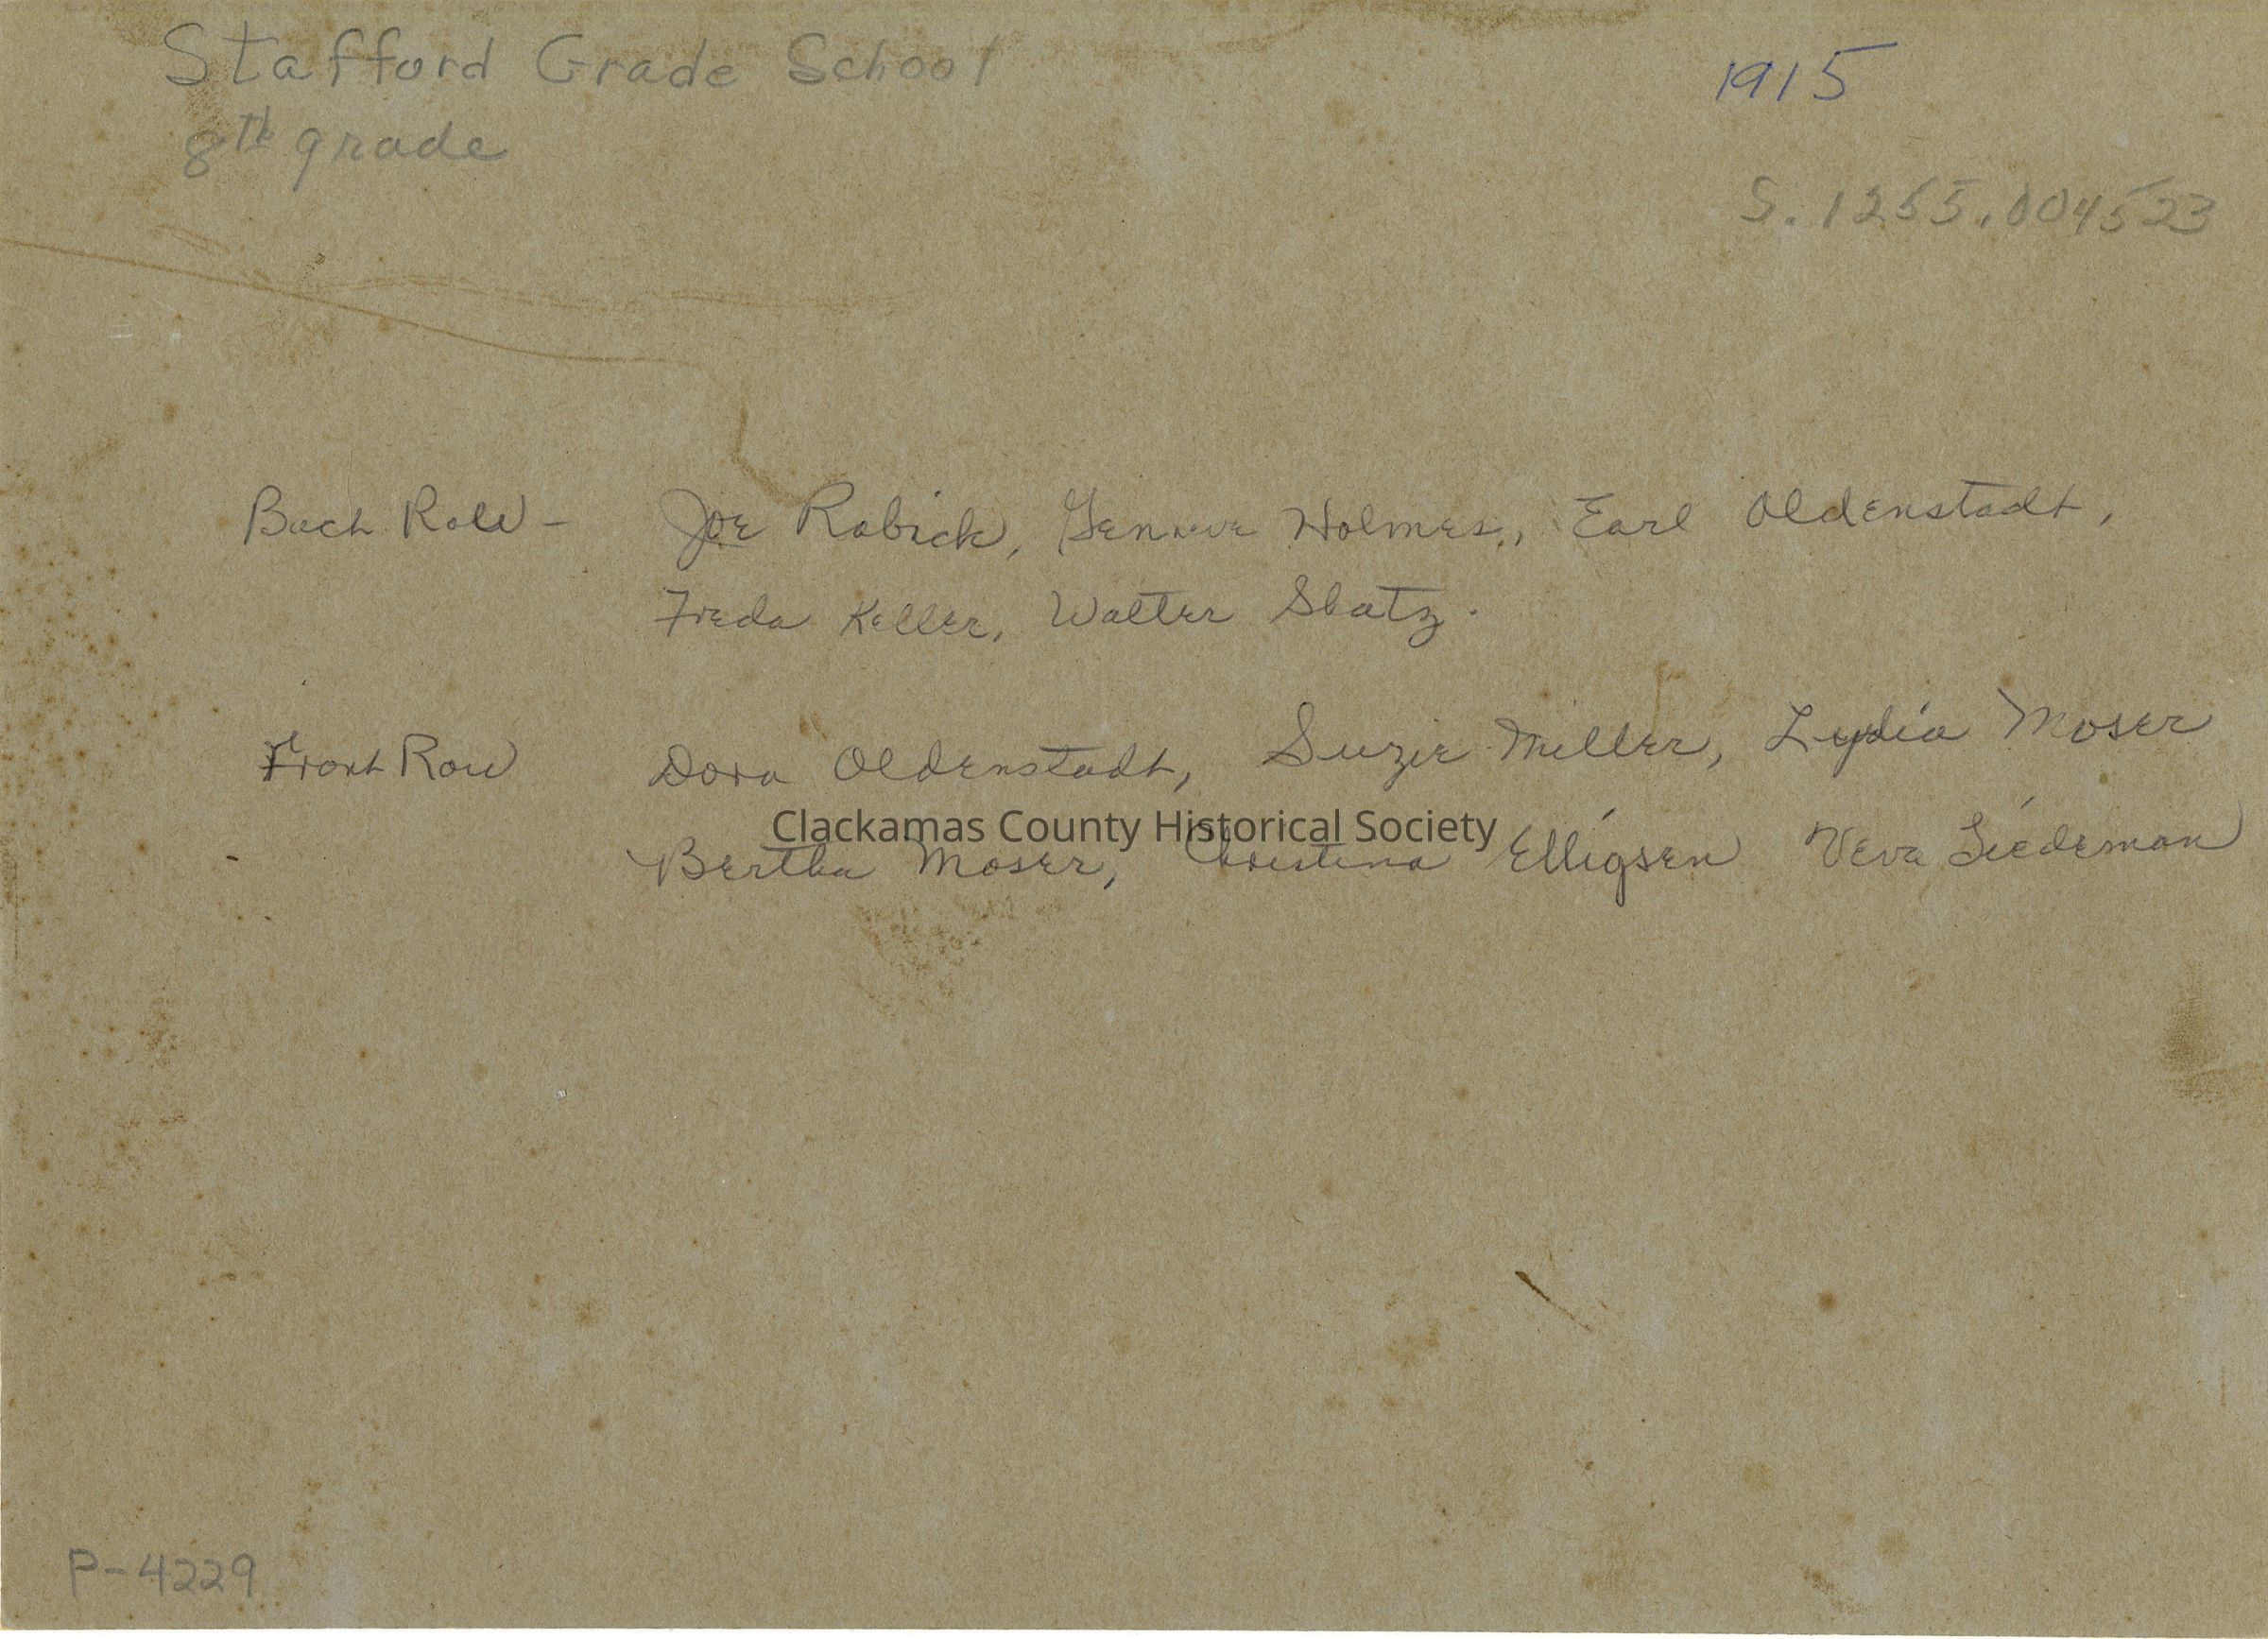 Stafford Grade School
1915
8th grade
S. 1255.004523
Back Row - Joe Rabick, Geneve Holmes, Earl Oldenstadt,
Freda Keller, Walter Slatz.
Front Row Dora Oldenstadt, Suzie Miller, Lydia Moser
Clackamas County Historical Society
Bertha Moser, Christina Elligsen Veva Tiedeman
P-4229